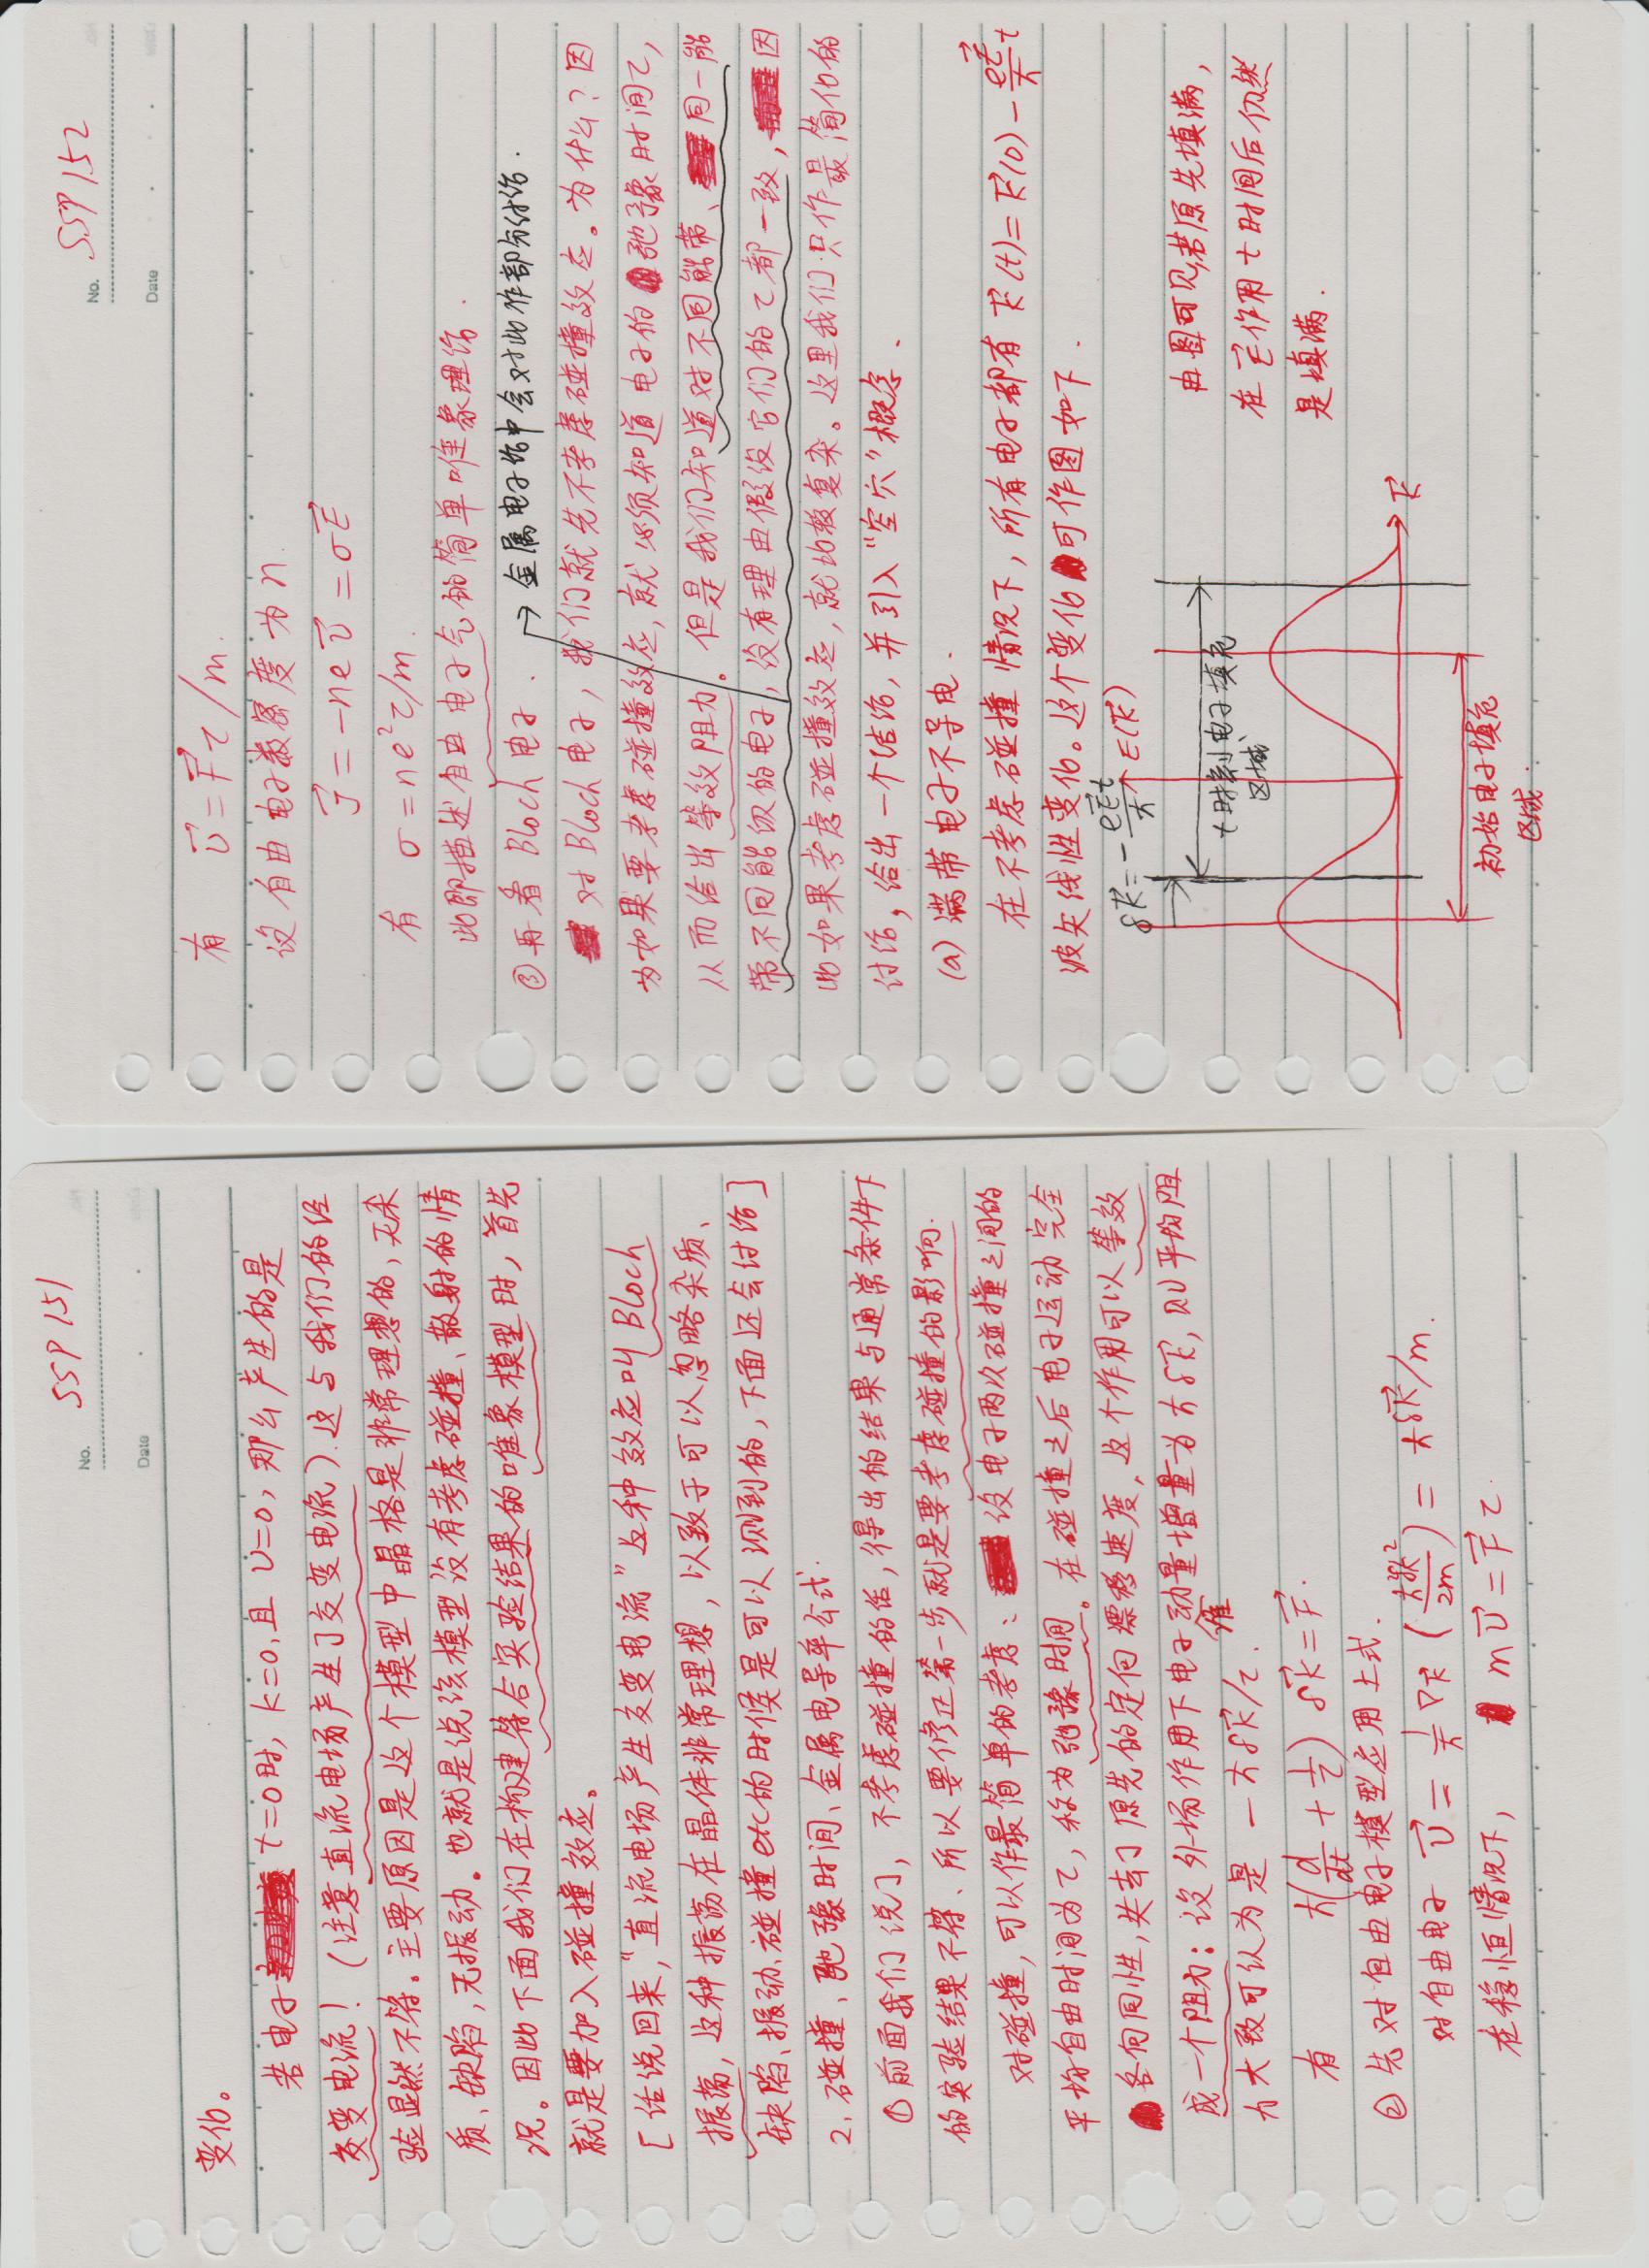 No. SSP 151
Date
变化。
若电子 t=0时, k=0,且 υ=0, 那么产生的是
交变电流! (注意直流电场产生了交变电流). 这与我们的经
验显然不符。主要原因是这个模型中晶格是非常理想的, 无杂
质、缺陷, 无振动。也就是说该模型没有考虑碰撞、散射的情
况。因此下面我们在构建符合实验结果的唯象模型时, 首先
就是要加入碰撞效应。
[话说回来,“直流电场产生交变电流”这种效应叫 Bloch
振荡, 这种振荡在晶体非常理想, 以致于可以忽略杂质、
缺陷、振动、碰撞etc的时候是可以观测到的, 下面还会讨论]
2. 碰撞、弛豫时间、金属电导率公式.
①前面我们说了, 不考虑碰撞的话, 得出的结果与通常条件下
的实验结果不符、所以要修正第一步就是要考虑碰撞的影响.
对碰撞, 可以作最简单的考虑: 设电子两次碰撞之间的
平均自由时间为τ, 称为弛豫时间。在碰撞之后电子运动完全
各向同性, 失去了原先的定向漂移速度, 这个作用可以等效
成一个阻力: 设外场作用下电子动量增量为ℏδk⃗, 则平均阻
力大致可认为是 -ℏδk⃗/τ.
有 ℏ(d/dt + 1/τ) δk⃗ = F⃗.
② 先对自由电子模型应用上式.
对自由电子 υ⃗ = 1/ℏ ∇k⃗ (ℏ²δk²/2m) = ℏδk⃗/m.
在稳恒情况下, mυ⃗ = F⃗τ.
No. SSP 152
Date
有 υ⃗ = F⃗τ/m.
设自由电子数密度为n.
J⃗ = -neυ⃗ = σE⃗
有 σ = ne²τ/m.
此即描述自由电子气的简单唯象理论.
③再看 Bloch 电子.
→ 金属电子论中会对此作部分讨论.
对 Bloch 电子, 我们就先不考虑碰撞效应。为什么? 因
为如果要考虑碰撞效应, 就必须知道电子的弛豫时间τ,
从而给出等效阻力。但是我们知道对不同能带、同一能
带不同能级的电子, 没有理由假设它们的τ都一致, 因
此如果考虑碰撞效应, 就比较复杂。这里我们只作最简化的
讨论, 给出一个结论, 并引入“空穴”概念.
(a) 满带电子不导电.
在不考虑碰撞情况下, 所有电子都有 k⃗(t)=k⃗(0)-eE⃗/ℏ t
波矢线性变化。这个变化可作图如下.
δk⃗=-eE⃗t/ℏ
E(k⃗)
t时刻电子填充
区域
由图可见,若原先填满,
在E⃗作用t时间后仍然
是填满.
k⃗
初始电子填充
区域.